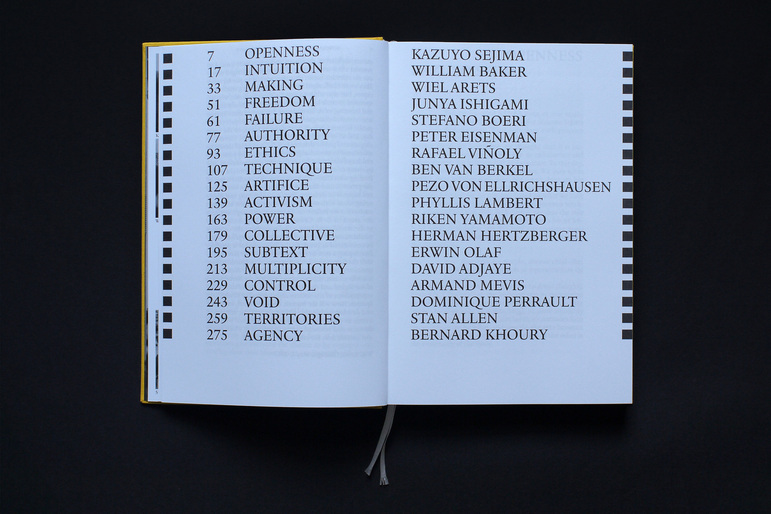 7 OPENNESS KAZUYO SEJIMA
17 INTUITION WILLIAM BAKER
33 MAKING WIEL ARETS
51 FREEDOM JUNYA ISHIGAMI
61 FAILURE STEFANO BOERI
77 AUTHORITY PETER EISENMAN
93 ETHICS RAFAEL VIŃOLY
107 TECHNIQUE BEN VAN BERKEL
125 ARTIFICE PEZO VON ELLRICHSHAUSEN
139 ACTIVISM PHYLLIS LAMBERT
163 POWER RIKEN YAMAMOTO
179 COLLECTIVE HERMAN HERTZBERGER
195 SUBTEXT ERWIN OLAF
213 MULTIPLICITY DAVID ADJAYE
229 CONTROL ARMAND MEVIS
243 VOID DOMINIQUE PERRAULT
259 TERRITORIES STAN ALLEN
275 AGENCY BERNARD KHOURY